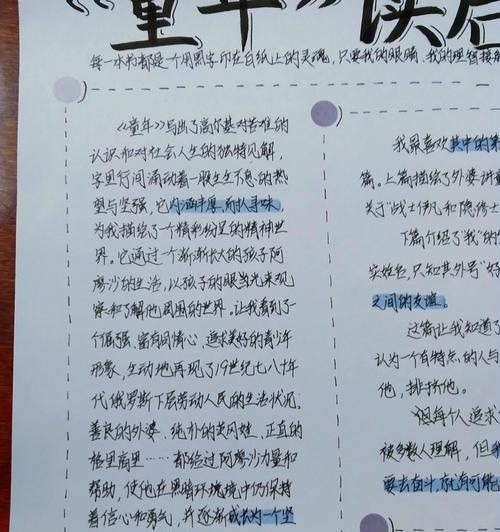 《童年》读后
每一本书都是一个用黑字印在白纸上的灵魂，只要我的眼睛、我的理智接
《童年》写出了高尔基对苦难的
认识和对社会人生的独特见解，
字里行间涌动着一股生生不息的热
望与坚强，它内涵丰厚，耐人寻味，
为我描绘了一个精彩纷呈的精神世
界。它通过一个渐渐长大的孩子阿
廖沙的生活，以孩子的眼光来观
察和了解他周围的世界。让我看到了一
个倔强、富有同情心、追求美好的青少年
形象，生动地再现了19世纪七八十年
代俄罗斯下层劳动人民的生活状况。
善良的外婆、纯朴的茨冈娃、正直的
格里高里……都给过阿廖沙力量和
帮助，使他在黑暗环境境中仍保持
着信心和勇气，并逐渐成长为一个坚
我最喜欢其中的第
篇。上篇描绘了外婆讲
关于"战士伊凡和隐修士
下篇介绍了"我"的
实姓名，只知其外号"好
之间的友谊。
这篇让我知道了
认为一个有特点的人与
他，排挤他。
但每个人追求
被多数人理解，但我
要去奋斗，就有可能